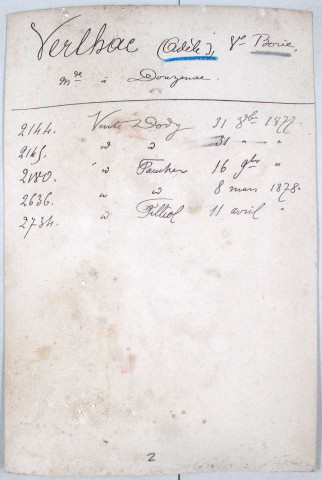 Verlhac (Adèle), Vve Borie,
Mde à Donzenac.
2144. Vente Dody 31 8bre 1877.
2145. " " 31 " "
2180. " Faucher 16 9bre "
2636. " " 8 mars 1878.
2734. " Filliol 11 avril "
2